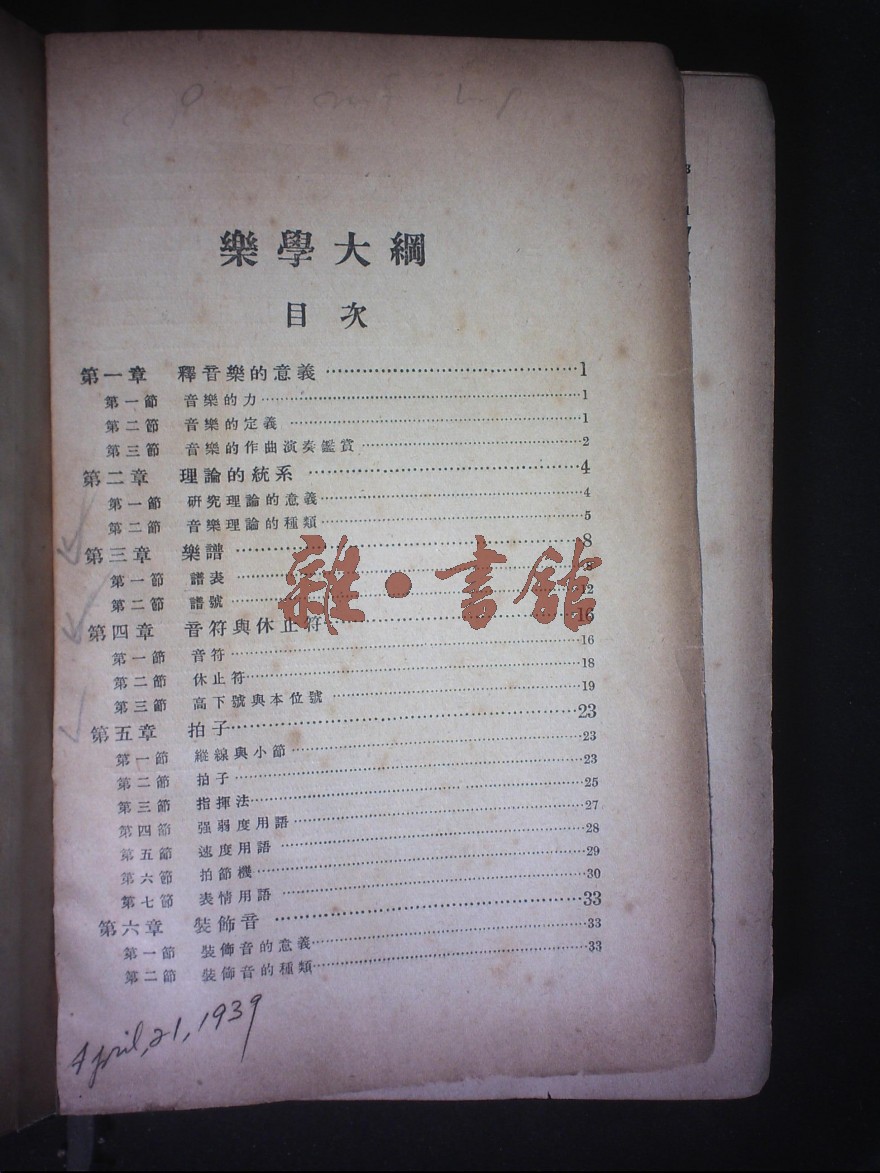 樂學大綱
目次
第一章 釋音樂的意義……………………………………1
第一節 音樂的力……………………………………1
第二節 音樂的定義……………………………………1
第三節 音樂的作曲演奏鑑賞……………………………………2
第二章 理論的統系……………………………………4
第一節 研究理論的意義……………………………………4
第二節 音樂理論的種類……………………………………5
第三章 樂譜……………………………………8
第一節 譜表……………………………………8
第二節 譜號……………………………………12
雜·書館
第四章 音符與休止符……………………………………16
第一節 音符……………………………………16
第二節 休止符……………………………………18
第三節 高下號與本位號……………………………………19
第五章 拍子……………………………………23
第一節 縱線與小節……………………………………23
第二節 拍子……………………………………23
第三節 指揮法……………………………………25
第四節 强弱度用語……………………………………27
第五節 速度用語……………………………………28
第六節 拍節機……………………………………29
第七節 表情用語……………………………………30
第六章 裝飾音……………………………………33
第一節 裝飾音的意義……………………………………33
第二節 裝飾音的種類……………………………………33
April, 21, 1939